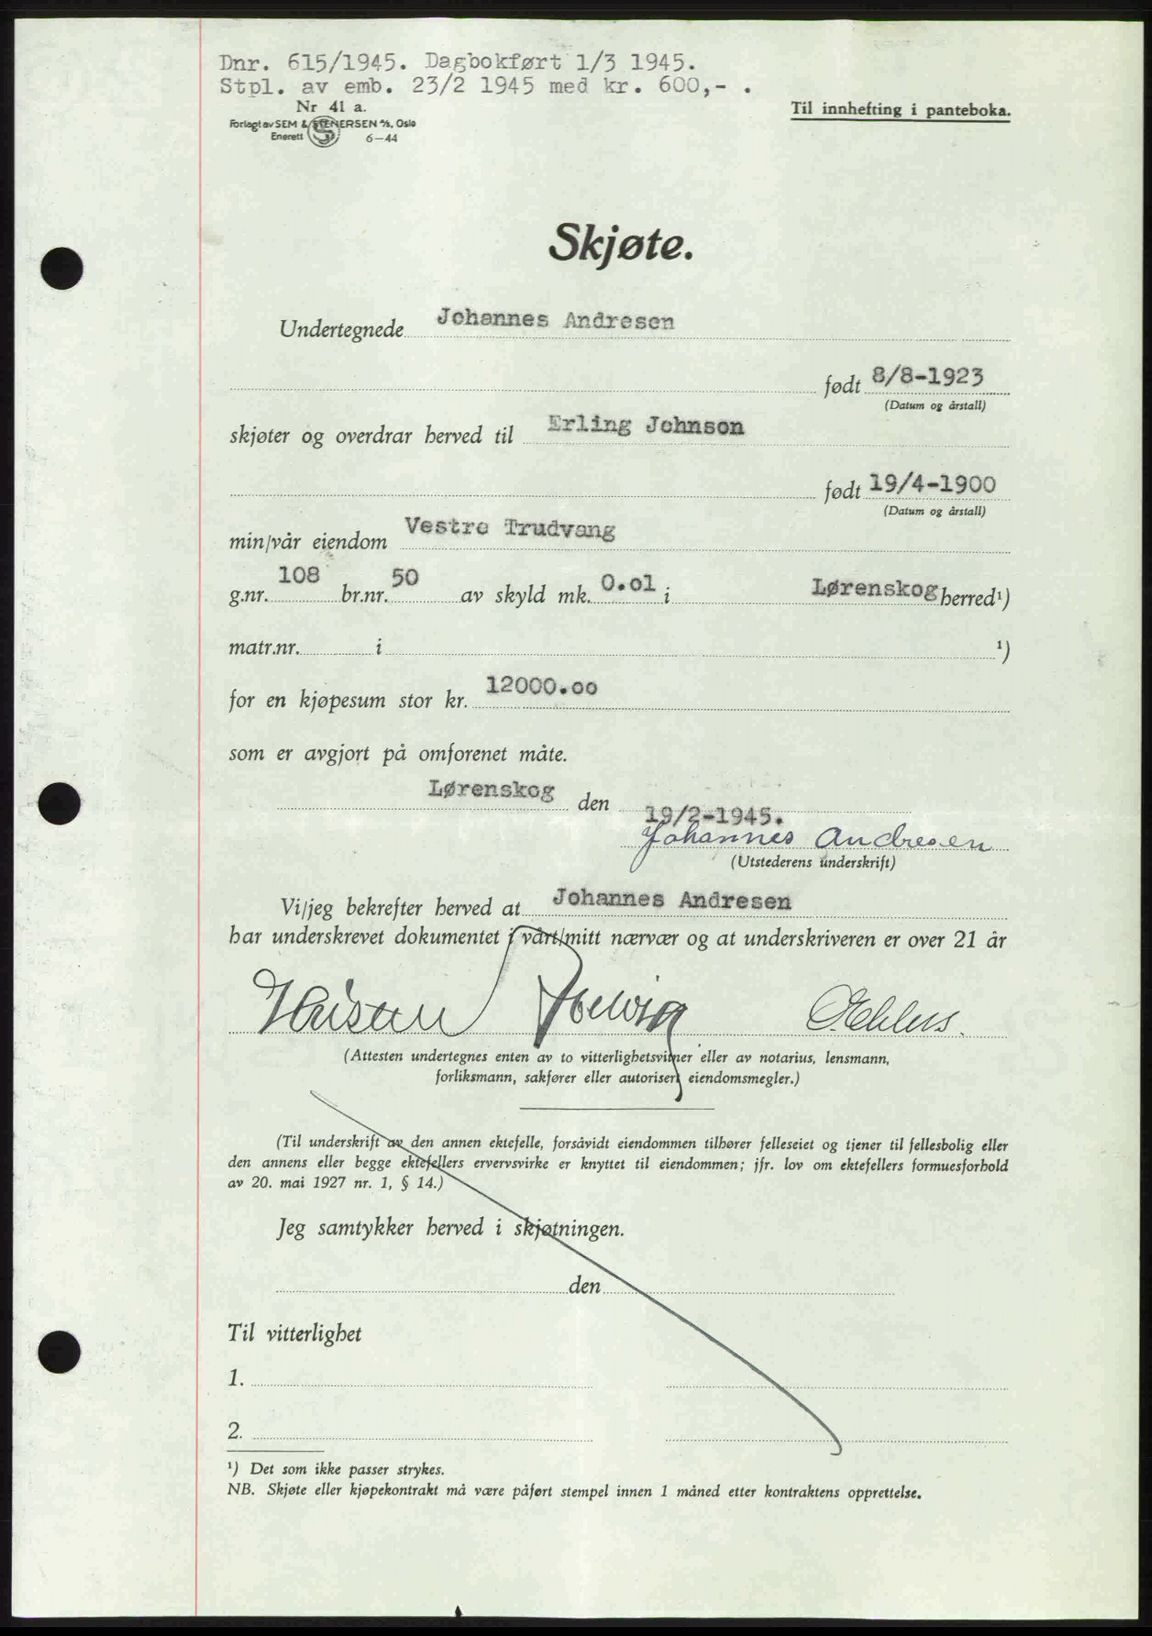 Dnr. 615/1945. Dagbokført 1/3 1945.
Stpl. av emb. 23/2 1945 med kr. 600,- .
Nr 41 a.
Forlagt av SEM & STENERSEN A/S, Oslo
Enerett 6-44
Til innhefting i panteboka.
Skjøte.
Undertegnede Johannes Andresen
født 8/8-1923
(Datum og årstall)
skjøter og overdrar herved til Erling Johnson
født 19/4-1900
(Datum og årstall)
min/vår eiendom Vestre Trudvang
g.nr. 108 br.nr. 50 av skyld mk. 0.01 i Lørenskog herred¹)
matr.nr. i ¹)
for en kjøpesum stor kr. 12000.00
som er avgjort på omforenet måte.
Lørenskog den 19/2-1945.
Johannes Andresen
(Utstederens underskrift)
Vi/jeg bekrefter herved at Johannes Andresen
har underskrevet dokumentet i vårt/mitt nærvær og at underskriveren er over 21 år
(Attesten undertegnes enten av to vitterlighetsvitner eller av notarius, lensmann,
forliksmann, sakfører eller autorisert eiendomsmegler.)
(Til underskrift av den annen ektefelle, forsåvidt eiendommen tilhører felleseiet og tjener til fellesbolig eller
den annens eller begge ektefellers ervervsvirke er knyttet til eiendommen; jfr. lov om ektefellers formuesforhold
av 20. mai 1927 nr. 1, § 14.)
Jeg samtykker herved i skjøtningen.
den
Til vitterlighet
1.
2.
¹) Det som ikke passer strykes.
NB. Skjøte eller kjøpekontrakt må være påført stempel innen 1 måned etter kontraktens opprettelse.